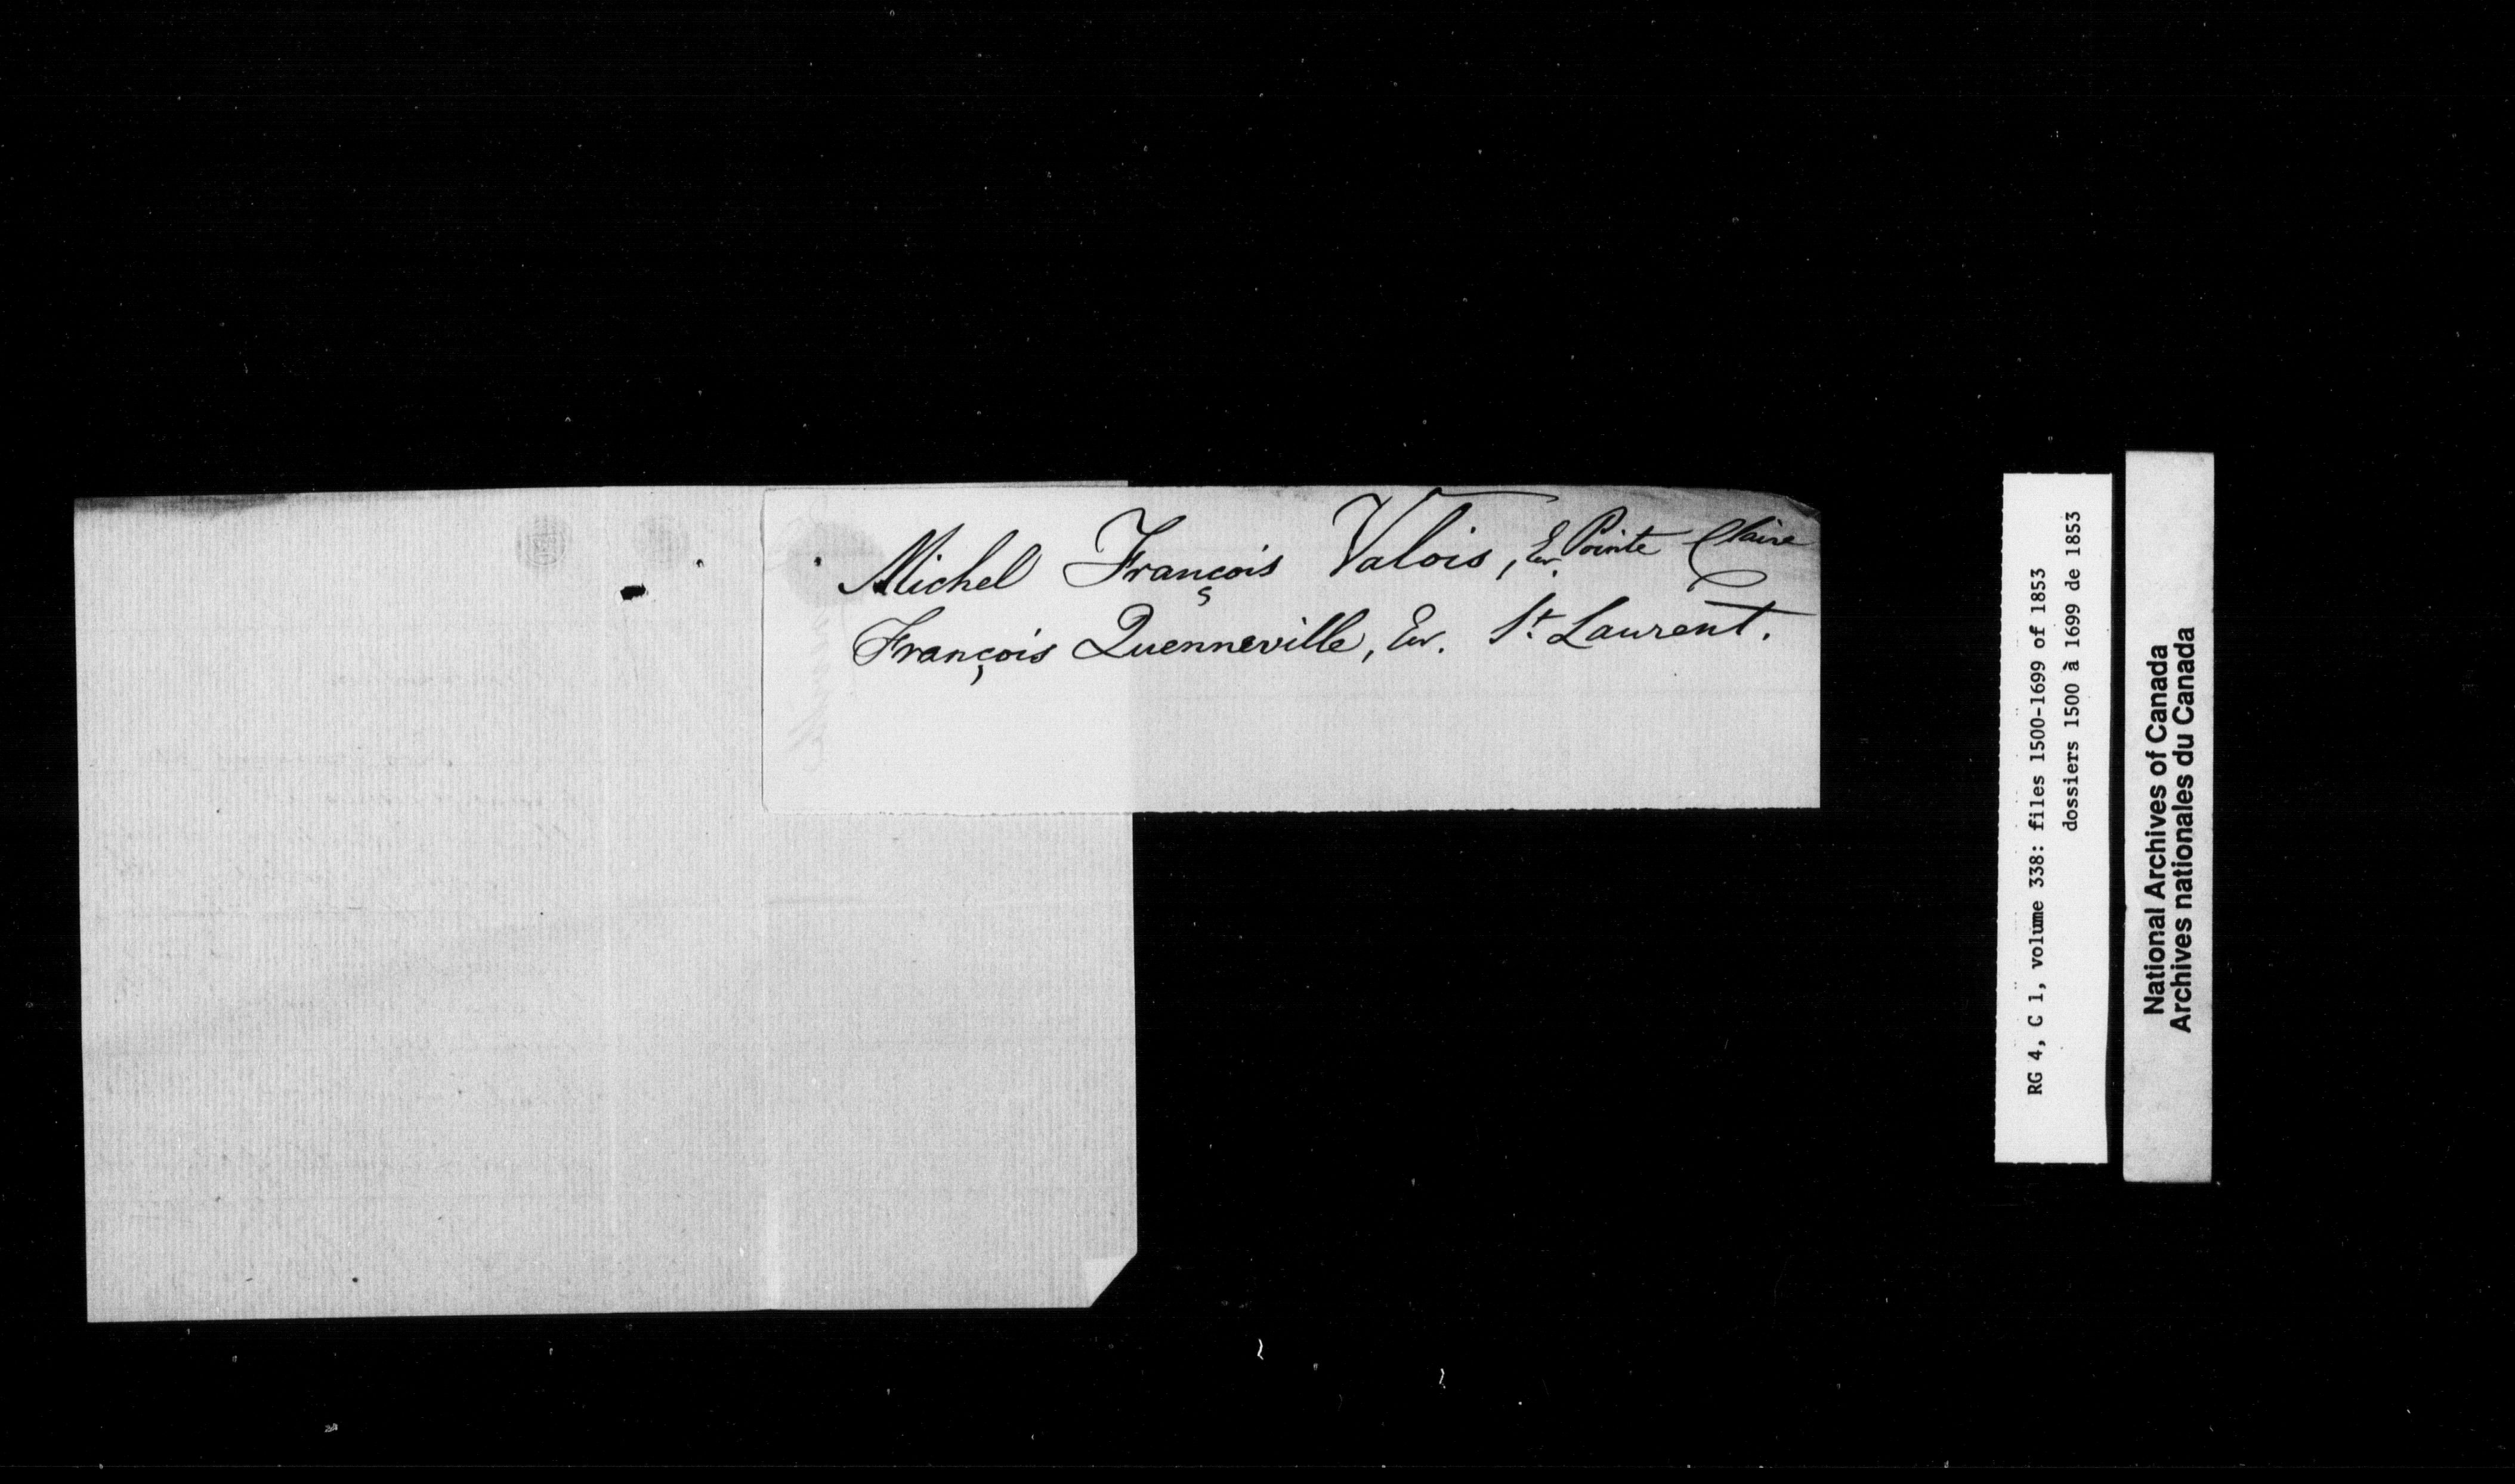 Michel François Valois, Er. Pointe Claire
François Quenneville, Er. St. Laurent.
RG 4, C 1, volume 338: files 1500-1699 of 1853
dossiers 1500 à 1699 de 1853
National Archives of Canada
Archives nationales du Canada